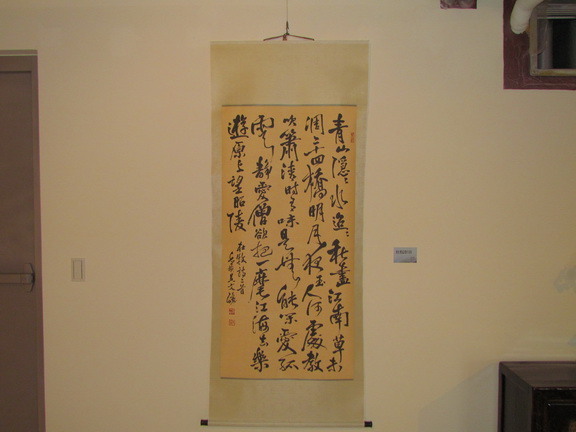 青山隱々水迢々秋盡江南草未
凋二十四橋明月夜玉人何處教
吹簫清時有味是無能閒愛孤
雲靜愛僧欲把一麾江海去樂
遊原上望昭陵
杜牧詩二首